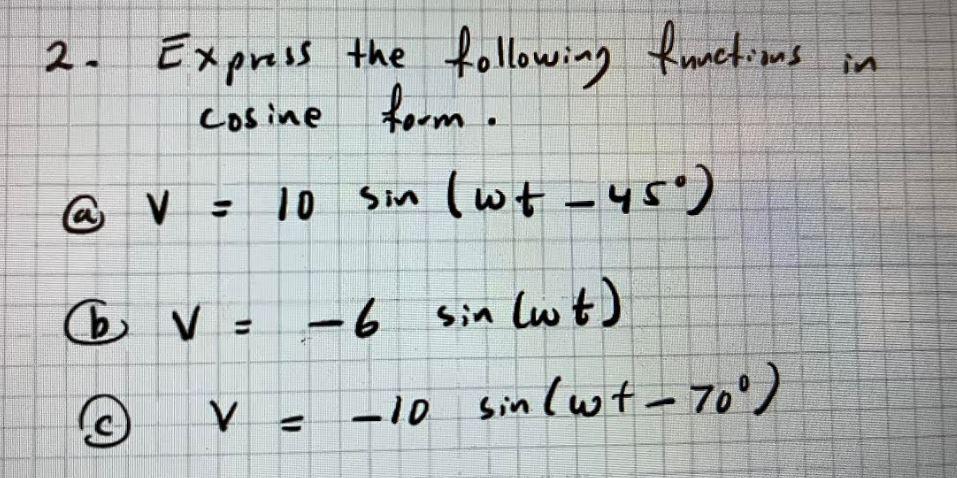 2. Express the following functions in
cosine form.
ⓐ V = 10 sin (ωt - 45°)
ⓑ V = -6 sin (ωt)
ⓒ V = -10 sin (ωt - 70°)